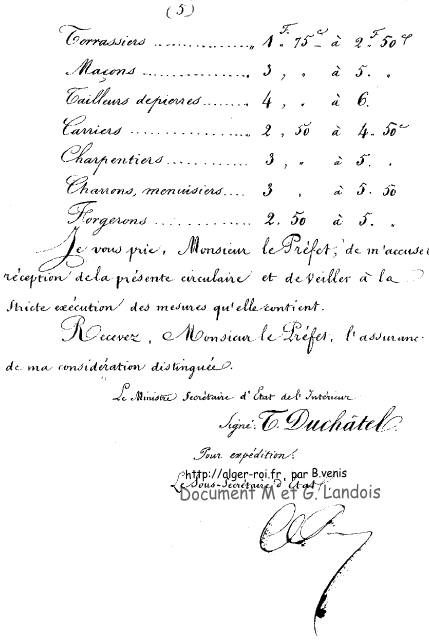 (5)
Terrassiers ................ „ 1F. 75c à 2F 50c
Maçons .................. „ 3 , „ à 5. „
Tailleurs de pierres........ „ 4 , „ à 6.
Carriers .................. „ 2 , 50 à 4. 50c
Charpentiers............... 3 , „ à 5. „
Charrons, menuisiers.... 3 „ à 5. 50
Forgerons ............... 2. 50 à 5. „
Je vous prie, Monsieur le Préfet, de m'accuser
réception de la présente circulaire et de veiller à la
stricte exécution des mesures qu'elle contient.
Recevez, Monsieur le Préfet, l'assuranc
de ma considération distinguée.
Le Ministre Secrétaire d'Etat de l'Intérieur
Signé: T. Duchâtel.
Pour expédition.
http://alger-roi.fr, par B.venis
Le Sous-Secrétaire d'Etat
Document M et G. Landois